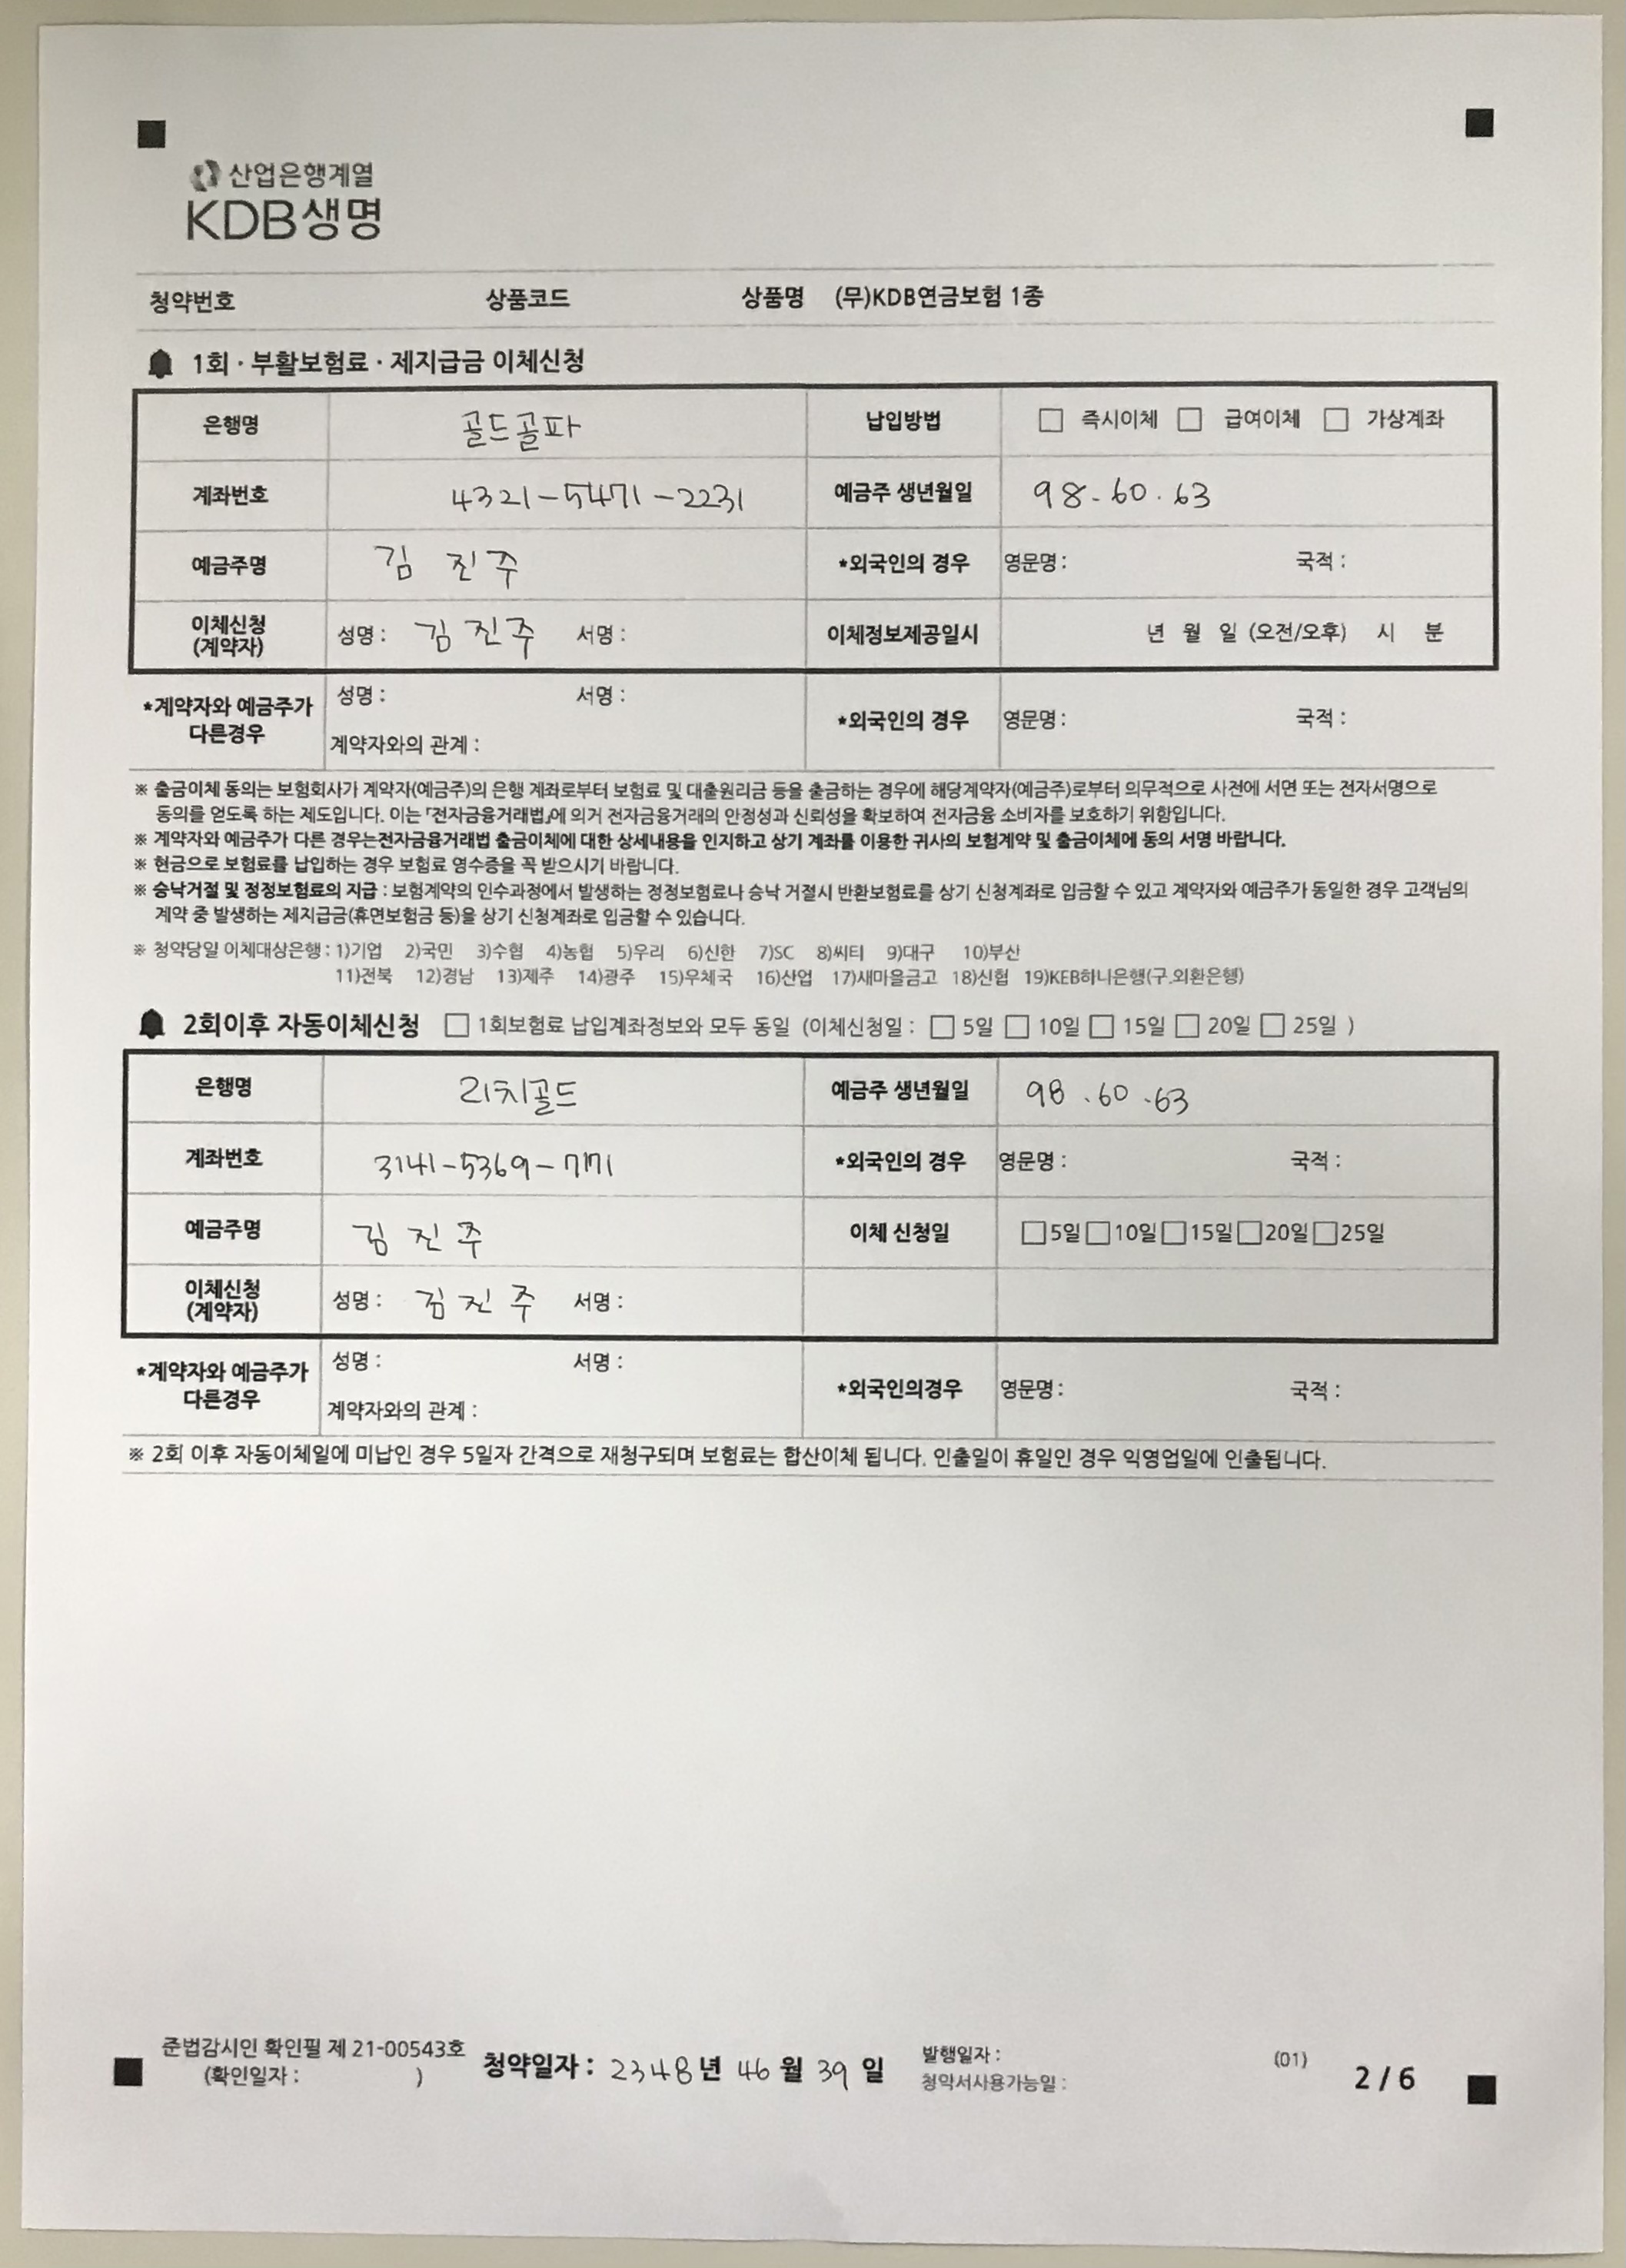 산업은행계열
KDB생명
청약번호 상품코드 상품명 (무)KDB연금보험 1종
1회 · 부활보험료 · 제지급금 이체신청
은행명 골드골파 납입방법 □ 즉시이체 □ 급여이체 □ 가상계좌
계좌번호 4321-5471-2231 예금주 생년월일 98.60.63
예금주명 김 진 주 *외국인의 경우 영문명 : 국적 :
이체신청 (계약자) 성명 : 김 진 주 서명 : 이체정보제공일시 년 월 일 (오전/오후) 시 분
*계약자와 예금주가 다른경우 성명 : 서명 : *외국인의 경우 영문명 : 국적 :
계약자와의 관계 :
※ 출금이체 동의는 보험회사가 계약자(예금주)의 은행 계좌로부터 보험료 및 대출원리금 등을 출금하는 경우에 해당계약자(예금주)로부터 의무적으로 사전에 서면 또는 전자서명으로
동의를 얻도록 하는 제도입니다. 이는 「전자금융거래법」에 의거 전자금융거래의 안정성과 신뢰성을 확보하여 전자금융 소비자를 보호하기 위함입니다.
※ 계약자와 예금주가 다른 경우는전자금융거래법 출금이체에 대한 상세내용을 인지하고 상기 계좌를 이용한 귀사의 보험계약 및 출금이체에 동의 서명 바랍니다.
※ 현금으로 보험료를 납입하는 경우 보험료 영수증을 꼭 받으시기 바랍니다.
※ 승낙거절 및 정정보험료의 지급 : 보험계약의 인수과정에서 발생하는 정정보험료나 승낙 거절시 반환보험료를 상기 신청계좌로 입금할 수 있고 계약자와 예금주가 동일한 경우 고객님의
계약 중 발생하는 제지급금(휴면보험금 등)을 상기 신청계좌로 입금할 수 있습니다.
※ 청약당일 이체대상은행 : 1)기업 2)국민 3)수협 4)농협 5)우리 6)신한 7)SC 8)씨티 9)대구 10)부산
11)전북 12)경남 13)제주 14)광주 15)우체국 16)산업 17)새마을금고 18)신협 19)KEB하나은행(구.외환은행)
2회이후 자동이체신청 □ 1회보험료 납입계좌정보와 모두 동일 (이체신청일 : □ 5일 □ 10일 □ 15일 □ 20일 □ 25일 )
은행명 리치골드 예금주 생년월일 98.60.63
계좌번호 3141-5369-7171 *외국인의 경우 영문명 : 국적 :
예금주명 김 진 주 이체 신청일 □5일□10일□15일□20일□25일
이체신청 (계약자) 성명 : 김 진 주 서명 :
*계약자와 예금주가 다른경우 성명 : 서명 : *외국인의경우 영문명 : 국적 :
계약자와의 관계 :
※ 2회 이후 자동이체일에 미납인 경우 5일자 간격으로 재청구되며 보험료는 합산이체 됩니다. 인출일이 휴일인 경우 익영업일에 인출됩니다.
준법감시인 확인필 제 21-00543호
(확인일자 : )
청약일자 : 2348 년 46 월 39 일
발행일자 :
청약서사용가능일 :
(01)
2 / 6